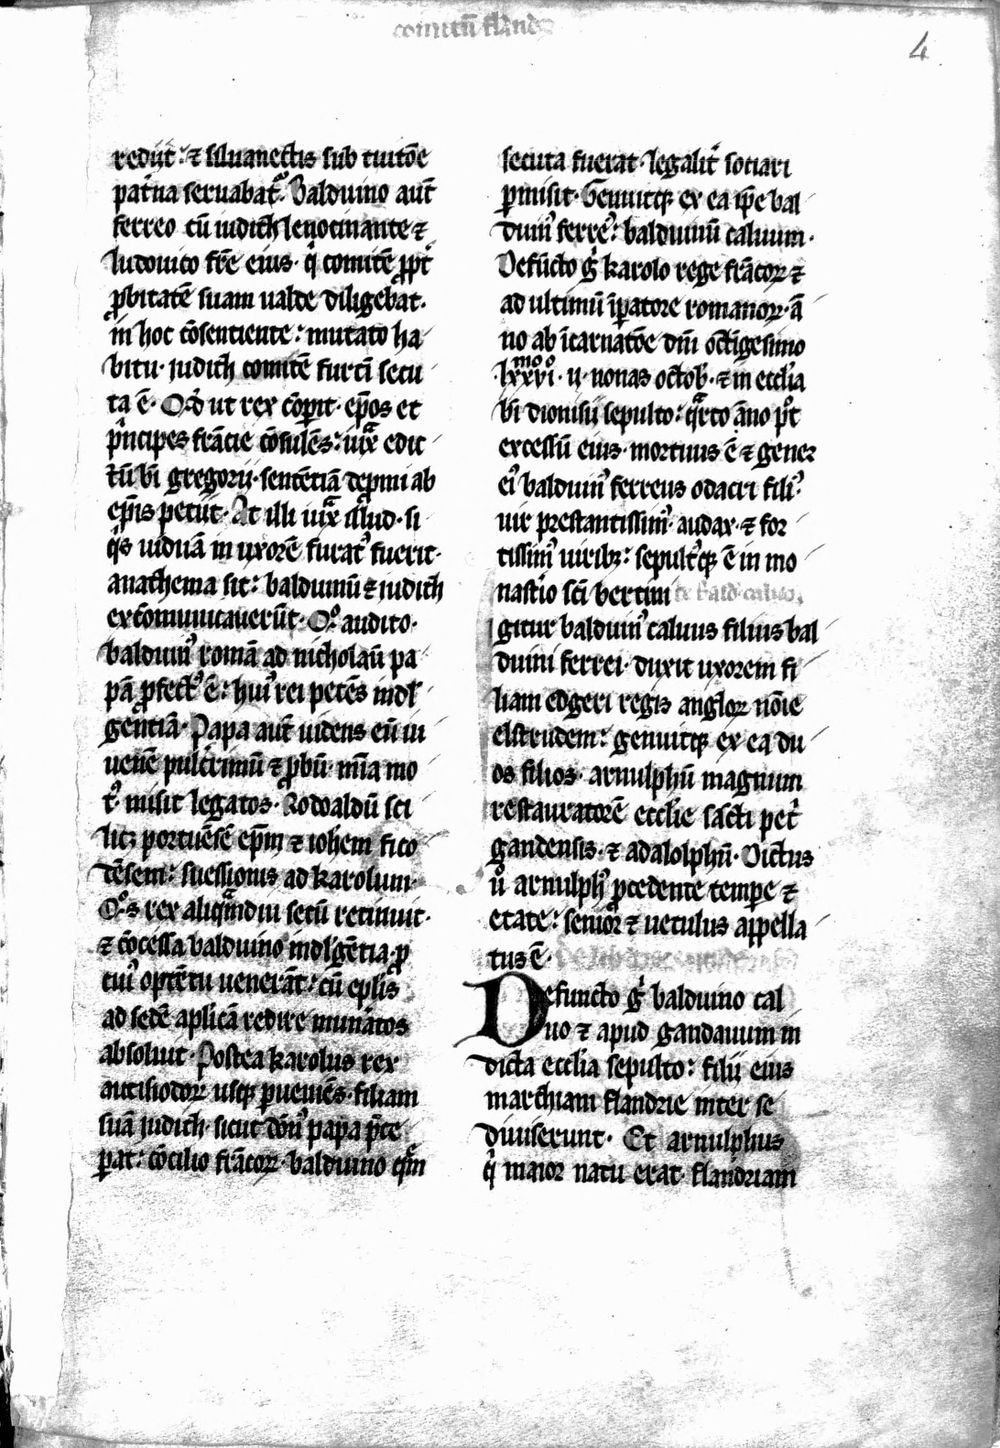 comitũ flandr̃
4
redijt: ⁊ siluanectis sub tuitõe
pat̃na seruabat᷑. Balduino aut̃
ferreo cũ iudith lenocinante ⁊
ludouico fr̃e eius· q̾ comitẽ ꝓpt̾
ꝓbitatẽ suam ualde diligebat·
in hoc cõsentiente: mutato ha
bitu· judith comitẽ furtĩ secu
ta ẽ· Qd̾ ut rex cõperit· ep̃os et
p̾ncipes frãcie cõsulẽs: iux̾ edic
tũ bĩ gregorii· sentẽtiã dep̱mi ab
ep̃is petiit· At illi iux̾ illud· si
q̾s uiduã in uxorẽ furat᷒ fuerit·
anathema sit: balduinũ ⁊ iudith
excõmunicauerũt· Qo᷒ audito·
balduin᷒ romã ad nicholaũ pa
pã ꝓfect᷒ ẽ: hui᷒ rei petẽs indl̾
gentiã· Papa aut̃ uidens eũ iu
uenẽ pulcrimũ ⁊ ꝓbũ· mĩa mo
t᷒· misit legatos· Rodoaldũ sci
lic; portuẽsẽ ep̃m ⁊ ioh̃em fico
cẽsem: suessionis ad karolum·
Qo᷒s rex aliqͣndiu secũ retinuit·
⁊ cõcessa balduino indl̾gẽtia· ꝓ
cui᷒ optẽtu uenerãt: cũ ep̃lis
ad sedẽ apl̾icã redire munãtos
absoluit· Postea karolus rex
autisiodorꝝ usqꝫ ꝑueniẽs· filiam
suã judith· sicut dõn᷒ papa p̾ce
ꝑat: cõcilio frãcorꝝ· balduino qͣm
secuta fuerat· legalit̾ sociari
ꝑmisit· Genuitqꝫ ex ea ip̃e bal
duin᷒ ferre᷒: balduinũ caluum·
Defũcto g̾ karolo rege frãcorꝝ ⁊
ad ultimũ ĩpatore romanorꝝ· ã
no ab ĩcarnatõe dñi octĩgesimo
lxxvi·ᵐᵒ ii· nonas octob᷒· ⁊ in eccl̃ia
bĩ dionisij sepulto: qͣrto ãno pt̾
excessũ eius· mortuus ẽ ⁊ gener
ei᷒ balduin᷒ ferreus odacri fili᷒·
uir prestantissim᷒· audax· ⁊ for
tissim᷒ uiribꝫ: sepult᷒qꝫ ẽ in mo
nast̾io sc̃i bertini
gitur balduin᷒ caluus filius bal
duini ferrei· duxit uxorem fi
liam edgeri regis anglorꝝ nõie
elstrudem: genuitqꝫ ex ea du
os filios· arnulphũ magnum
restauratorẽ eccl̃ie sãcti pet̾
gandensis· ⁊ adalolphũ· Dictus
u̾ arnulph᷒ p̾cedente temp̱e ⁊
etate: senior ⁊ uetulus appella
tus ẽ·
Defuncto g̾ balduino cal
uo ⁊ apud gandauum in
dicta eccl̃ia sepulto: filij eius
marchiam flandrie inter se
diuiserunt· Et arnulphus
q̾ maior natu erat· flandriam